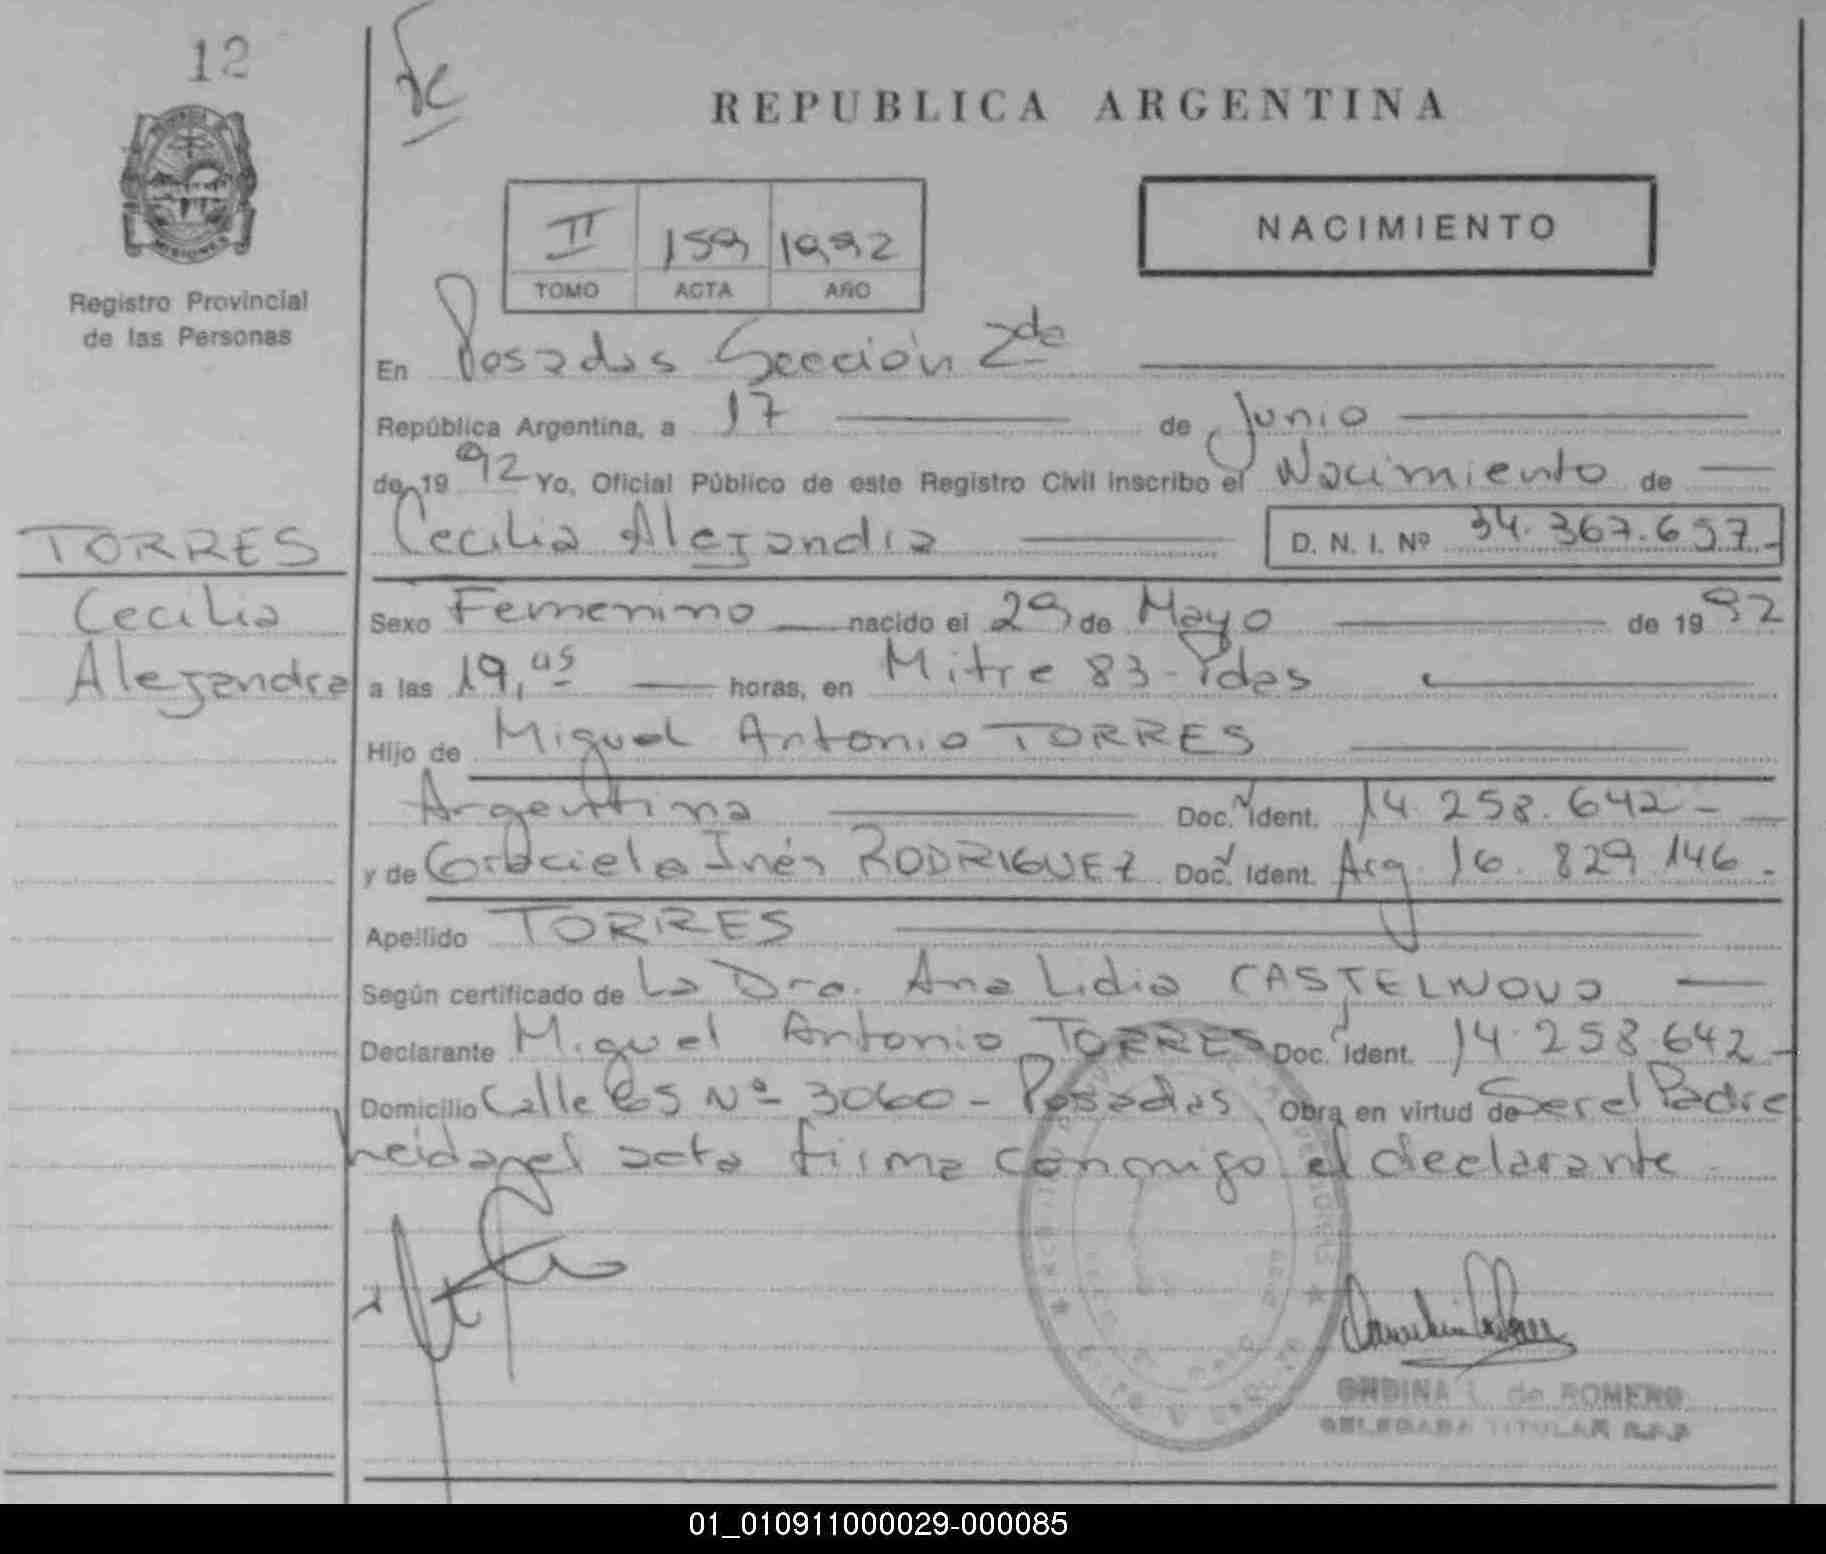 12
REPUBLICA ARGENTINA
MISIONES
Registro Provincial
de las Personas
II 159 1992
TOMO ACTA AÑO
NACIMIENTO
En Posadas Sección 2da
República Argentina, a 17 de Junio
de 19 92 Yo, Oficial Público de este Registro Civil inscribo el Nacimiento de
Cecilia Alejandra D. N. I. Nº 34.367.657-
TORRES
Cecilia
Alejandra
Sexo Femenino nacido el 29 de Mayo de 19 92
a las 19, horas, en Mitre 83 - Pdas
Hijo de Miguel Antonio TORRES
Argentina Doc. Ident. 14.258.642-
y de Graciela Inés RODRIGUEZ Doc. Ident. Arg. 16.829.146-
Apellido TORRES
Según certificado de La Dra. Ana Lidia CASTELNOVO
Declarante Miguel Antonio TORRES Doc. Ident. 14.258.642-
Domicilio Calle Nº 3060 - Posadas Obra en virtud de Ser el Padre
Leida el acta firma conmigo el declarante
ONDINA L. de ROMERO
DELEGADA TITULAR R.P.P
01_010911000029-000085